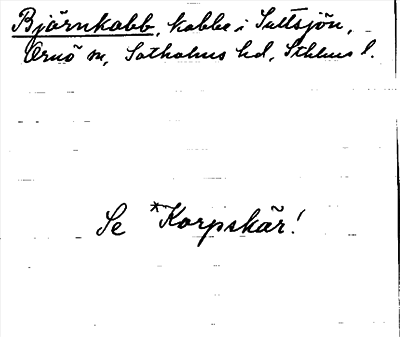 Björnkobb, kobbe i Saltsjön,
Ornö sn, Sotholms hd, Sthlms l.
Se *Korpskär!